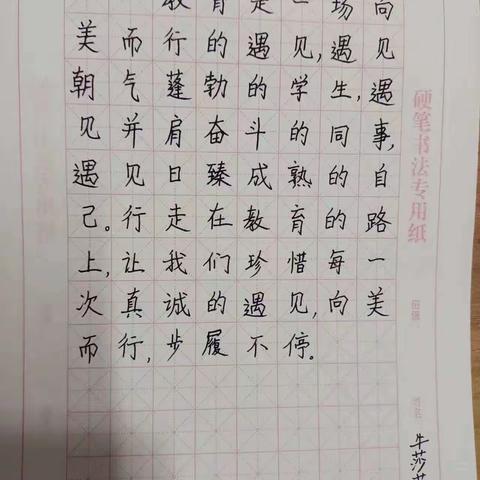 教育是一场向
美而行的遇见,遇见
朝气蓬勃的学生,遇
见并肩奋斗的同事,
遇见日臻成熟的自
己。行走在教育的路
上,让我们珍惜每一
次真诚的遇见,向美
而行,步履不停。
硬笔书法专用纸
班级
姓名
牛莎